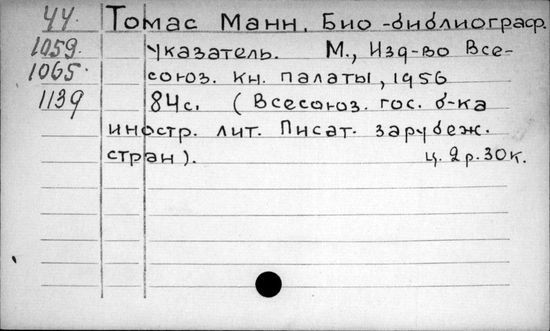 44. Томас Манн. Био-библиограф.
1059. указатель. М., Изд-во Все-
1065. союз. кн. палаты, 1956
1139 84с. (Всесоюз. гос. б-ка
иностр. лит. Писат. зарубеж.
стран). ц. 2р.30к.